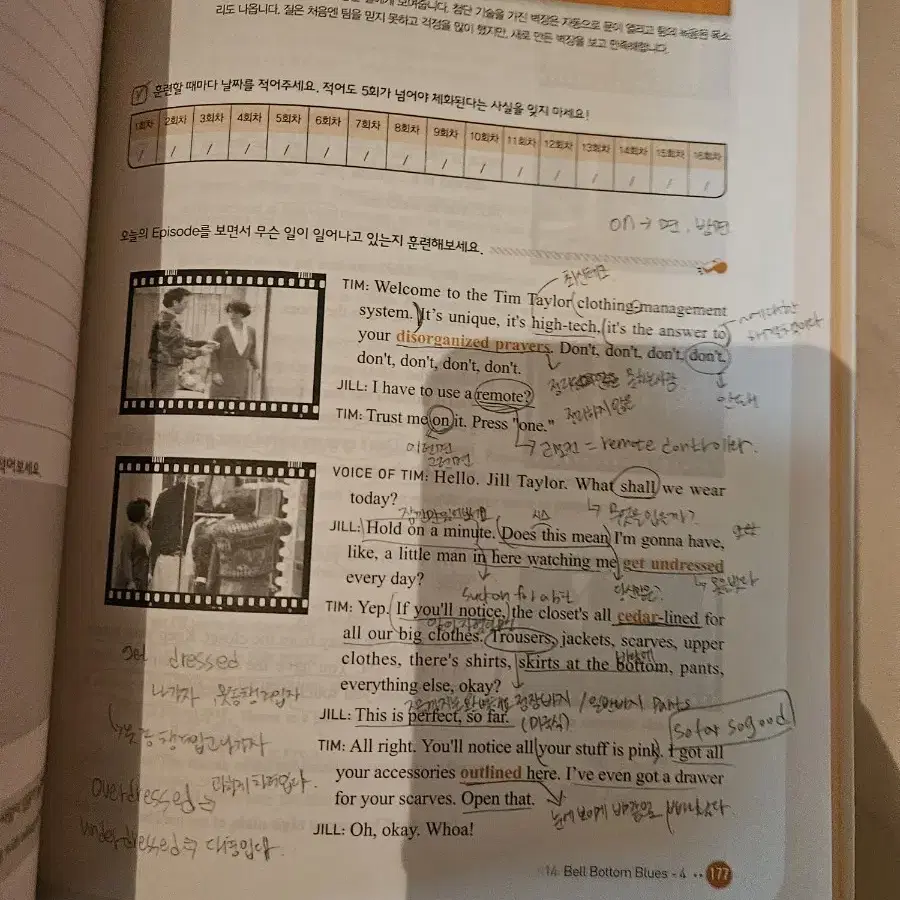 보여줍니다. 첨단 기술을 가진 벽장은 자동으로 문이 열리고 팀의 녹음된 목소
리도 나옵니다. 질은 처음엔 팀을 믿지 못하고 걱정을 많이 했지만, 새로 만든 벽장을 보고 만족해합니다.
훈련할 때마다 날짜를 적어주세요. 적어도 5회가 넘어야 체화된다는 사실을 잊지 마세요!
1회차 2회차 3회차 4회차 5회차 6회차 7회차 8회차 9회차 10회차 11회차 12회차 13회차 14회차 15회차 16회차
/ / / / / / / / / / / / / / / /
on → 면, 방면
오늘의 Episode를 보면서 무슨 일이 일어나고 있는지 훈련해보세요.
최신테크
TIM: Welcome to the Tim Taylor clothing-management
system. It's unique, it's high-tech, it's the answer to
~에 대한
your disorganized prayers. Don't, don't, don't, don't,
don't, don't, don't, don't.
안돼
JILL: I have to use a remote?
정리하지 않은
TIM: Trust me on it. Press "one."
리모컨 = remote controller.
이런면
그런면
적어보세요
VOICE OF TIM: Hello. Jill Taylor. What shall we wear
today?
무엇을 입을까?
JILL: Hold on a minute. Does this mean I'm gonna have,
like, a little man in here watching me get undressed
every day?
옷을 벗다
TIM: Yep. If you'll notice, the closet's all cedar-lined for
all our big clothes. Trousers, jackets, scarves, upper
clothes, there's shirts, skirts at the bottom, pants,
바닥에
everything else, okay?
정장바지 / 일반바지 pants
JILL: This is perfect, so far.
(미국식)
so far so good
TIM: All right. You'll notice all your stuff is pink. I got all
your accessories outlined here. I've even got a drawer
for your scarves. Open that.
JILL: Oh, okay. Whoa!
get dressed
overdressed
과하게 차려입다.
underdressed
14 Bell Bottom Blues - 4 177